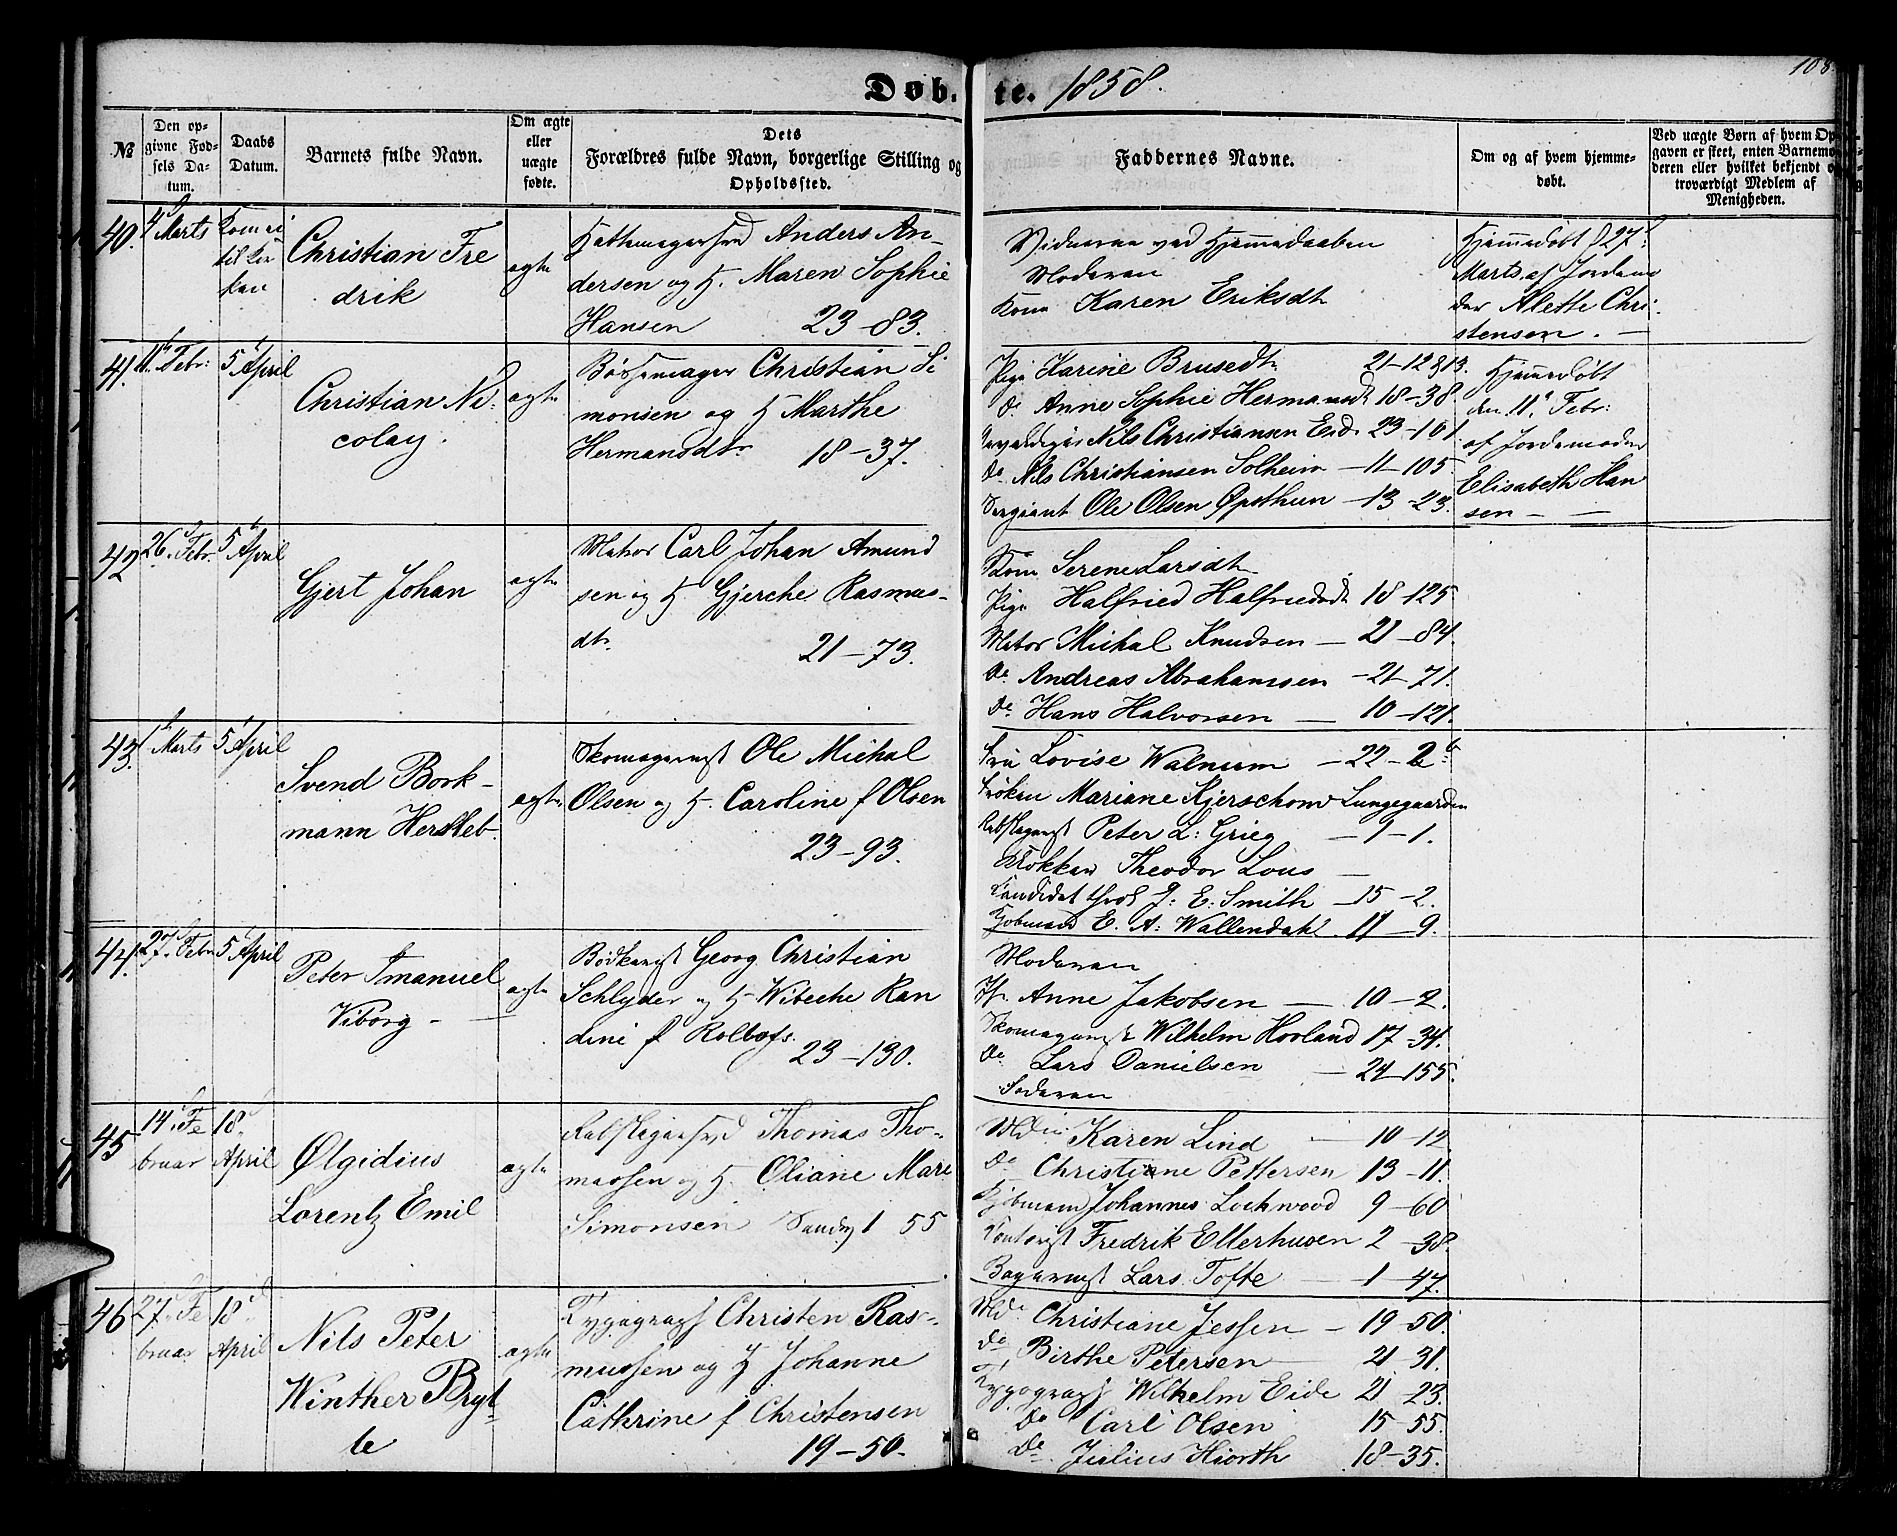 108
Døb. te. 1858.
№
Den opgivne Fødsels Datum.
Daabs Datum.
Barnets fulde Navn.
Om ægte eller uægte fødte.
Dets Forældres fulde Navn, borgerlige Stilling og Opholdssted.
Faddernes Navne.
Om og af hvem hjemmedøbt.
Ved uægte Børn af hvem Opgaven er skeet, enten Barnemoderen eller hvilket bekjendt og troværdigt Medlem af Menigheden.
40. 4d Marts Kom ei til Kirken
Christian Fre
drik
ægte
Anders An-
dersen og H. Maren Sophie
Hansen 23-83.
Vidnerne ved Hjemmedaaben
Moderen
Kone Karen Eriksdtr
Hjemmedøbt d 27d
Marts af Jordemo
der Alette Chri-
stensen. -
41. 11t Febr: 5t April
Christian Ni-
colay.
ægte
Bøssemager Christian Si
monsen og H Marthe
Hermansdtr 18-37.
Pige Karine Brusedtr 21-12&13.
do Anne Sophie Hermansdt 18-38
Nils Christiansen Eide 23-101
do Nils Christiansen Solheim - 11-105.
Sergeant Ole Olsen Opothun - 13-23.
Hjemmedøbt
den 11t Febr:
af Jordemoder
Elisabeth Han
sen - -
42 26d Febr. 5t April
Gjert Johan
ægte
Matros Carl Johan Amund
sen og H. Gjerche Rasmus-
dtr. 21-73.
Kone Serene Larsdtr
Pige Halfried Halfriedsdt 18-125
Matros Michal Knudsen - 21-84.
do Andreas Abrahamsen - 21-71.
do Hans Halvorsen - 10-121.
43. 1t Marts 5t April
Svend Bork-
mann Hersleb.
ægte
Skomagersvd Ole Michal
Olsen og H. Caroline f Olsen
23-93.
Fru Lovise Walnum - 22-2b
Frøken Mariane Kjerschow Lungegaarden
Peter L: Grieg - 1-1.
Theodor Lous -
Candidat J: E: Smith - 15-2.
Kjøbmand E. A: Wallendahl 11-9.
44. 27d Febr 5t April
Peter Imanuel
Viborg - -
ægte
Georg Christian
Schlyder og H Wibeche Ran
dine f Rolbofs. 23-130.
Moderen
Fr. Anne Jakobsen - 10-2.
Wilhelm Hovland 17-34.
do Lars Danielsen - 24-155.
Faderen
45 14d Fe
bruar 18d
April
Ølgidius
Lorentz Emil
ægte
Thomas Tho-
massen og H. Oliane Mare
Simonsen Sandv 1 55
Karen Lind - 10-12.
do Christiane Pettersen 13-11.
Kjøbmand Johannes Lockwood 9-60
Kontorist Fredrik Ellerhusen 2-38.
Lars Tofte - 1-47.
46 27d Fe
bruar 18d
April
Nils Peter
Winther Bryt-
te
ægte
Typograph Christen Ras-
mussen og H Johanne
Cathrine f Christensen
19-50.
Christiane Jessen - 19-50.
do Birthe Petersen - 21-31.
Typograph Wilhelm Eide 21-23.
do Carl Olsen 15-55.
do Julius Hiorth 18-35.